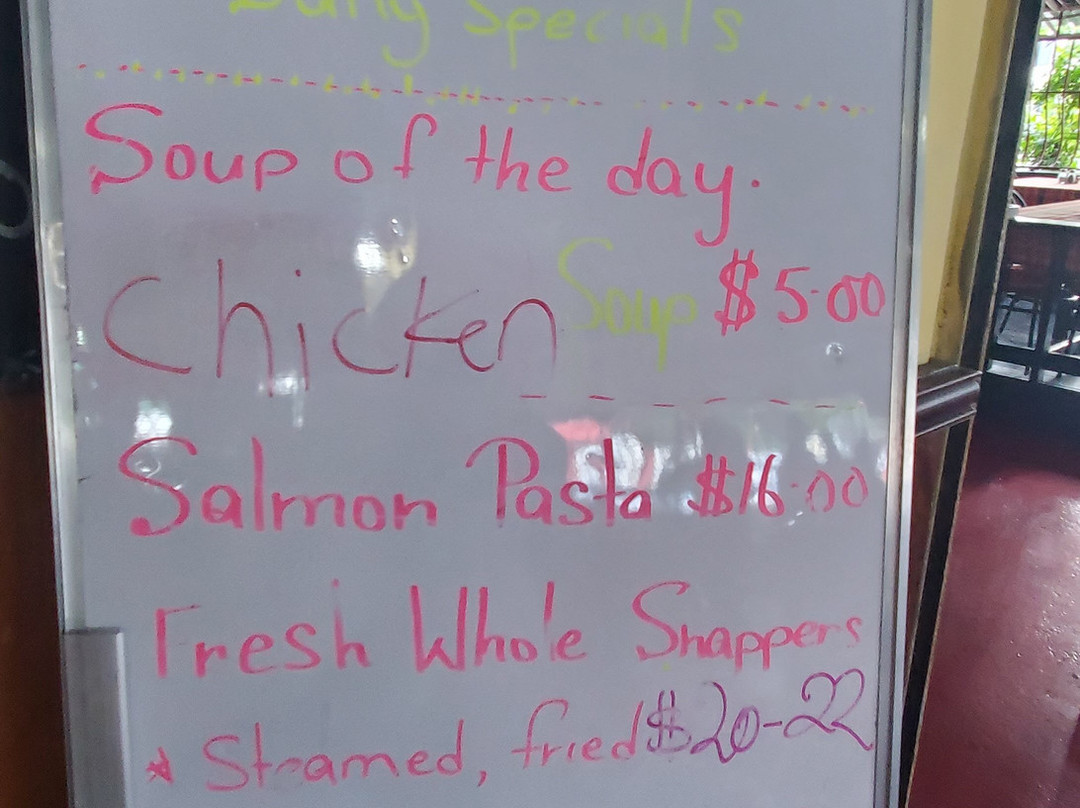 Daily Specials
Soup of the day.
Chicken Soup $5.00
Salmon Pasta $16.00
Fresh Whole Snappers
* Steamed, fried $20-22